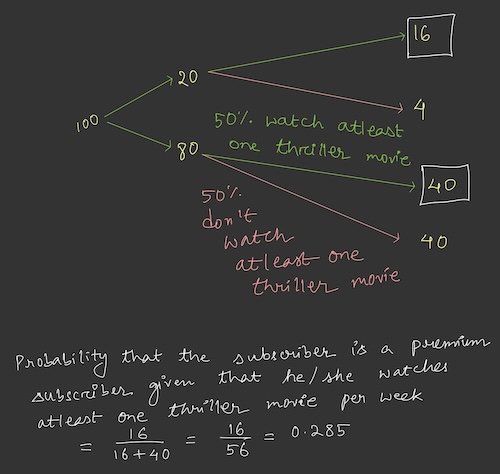 16
20
4
100
50% watch atleast
one thriller movie
80
40
50%
don't
watch
atleast one
thriller movie
40
Probability that the subscriber is a premium
subscriber given that he/she watches
atleast one thriller movie per week
= 16/16+40 = 16/56 = 0.285